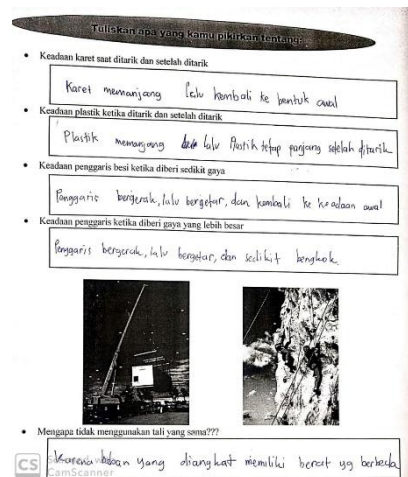 Tuliskan apa yang kamu pikirkan tentang:
• Keadaan karet saat ditarik dan setelah ditarik
Karet memanjang lalu kembali ke bentuk awal
• Keadaan plastik ketika ditarik dan setelah ditarik
Plastik memanjang lalu Plastik tetap panjang setelah ditarik
• Keadaan penggaris besi ketika diberi sedikit gaya
Penggaris bergerak, lalu bergetar, dan kembali ke keadaan awal
• Keadaan penggaris ketika diberi gaya yang lebih besar
Penggaris bergerak, lalu bergetar, dan sedikit bengkok
• Mengapa tidak menggunakan tali yang sama???
Karena beban yang diangkat memiliki berat yg berbeda
CS CamScanner